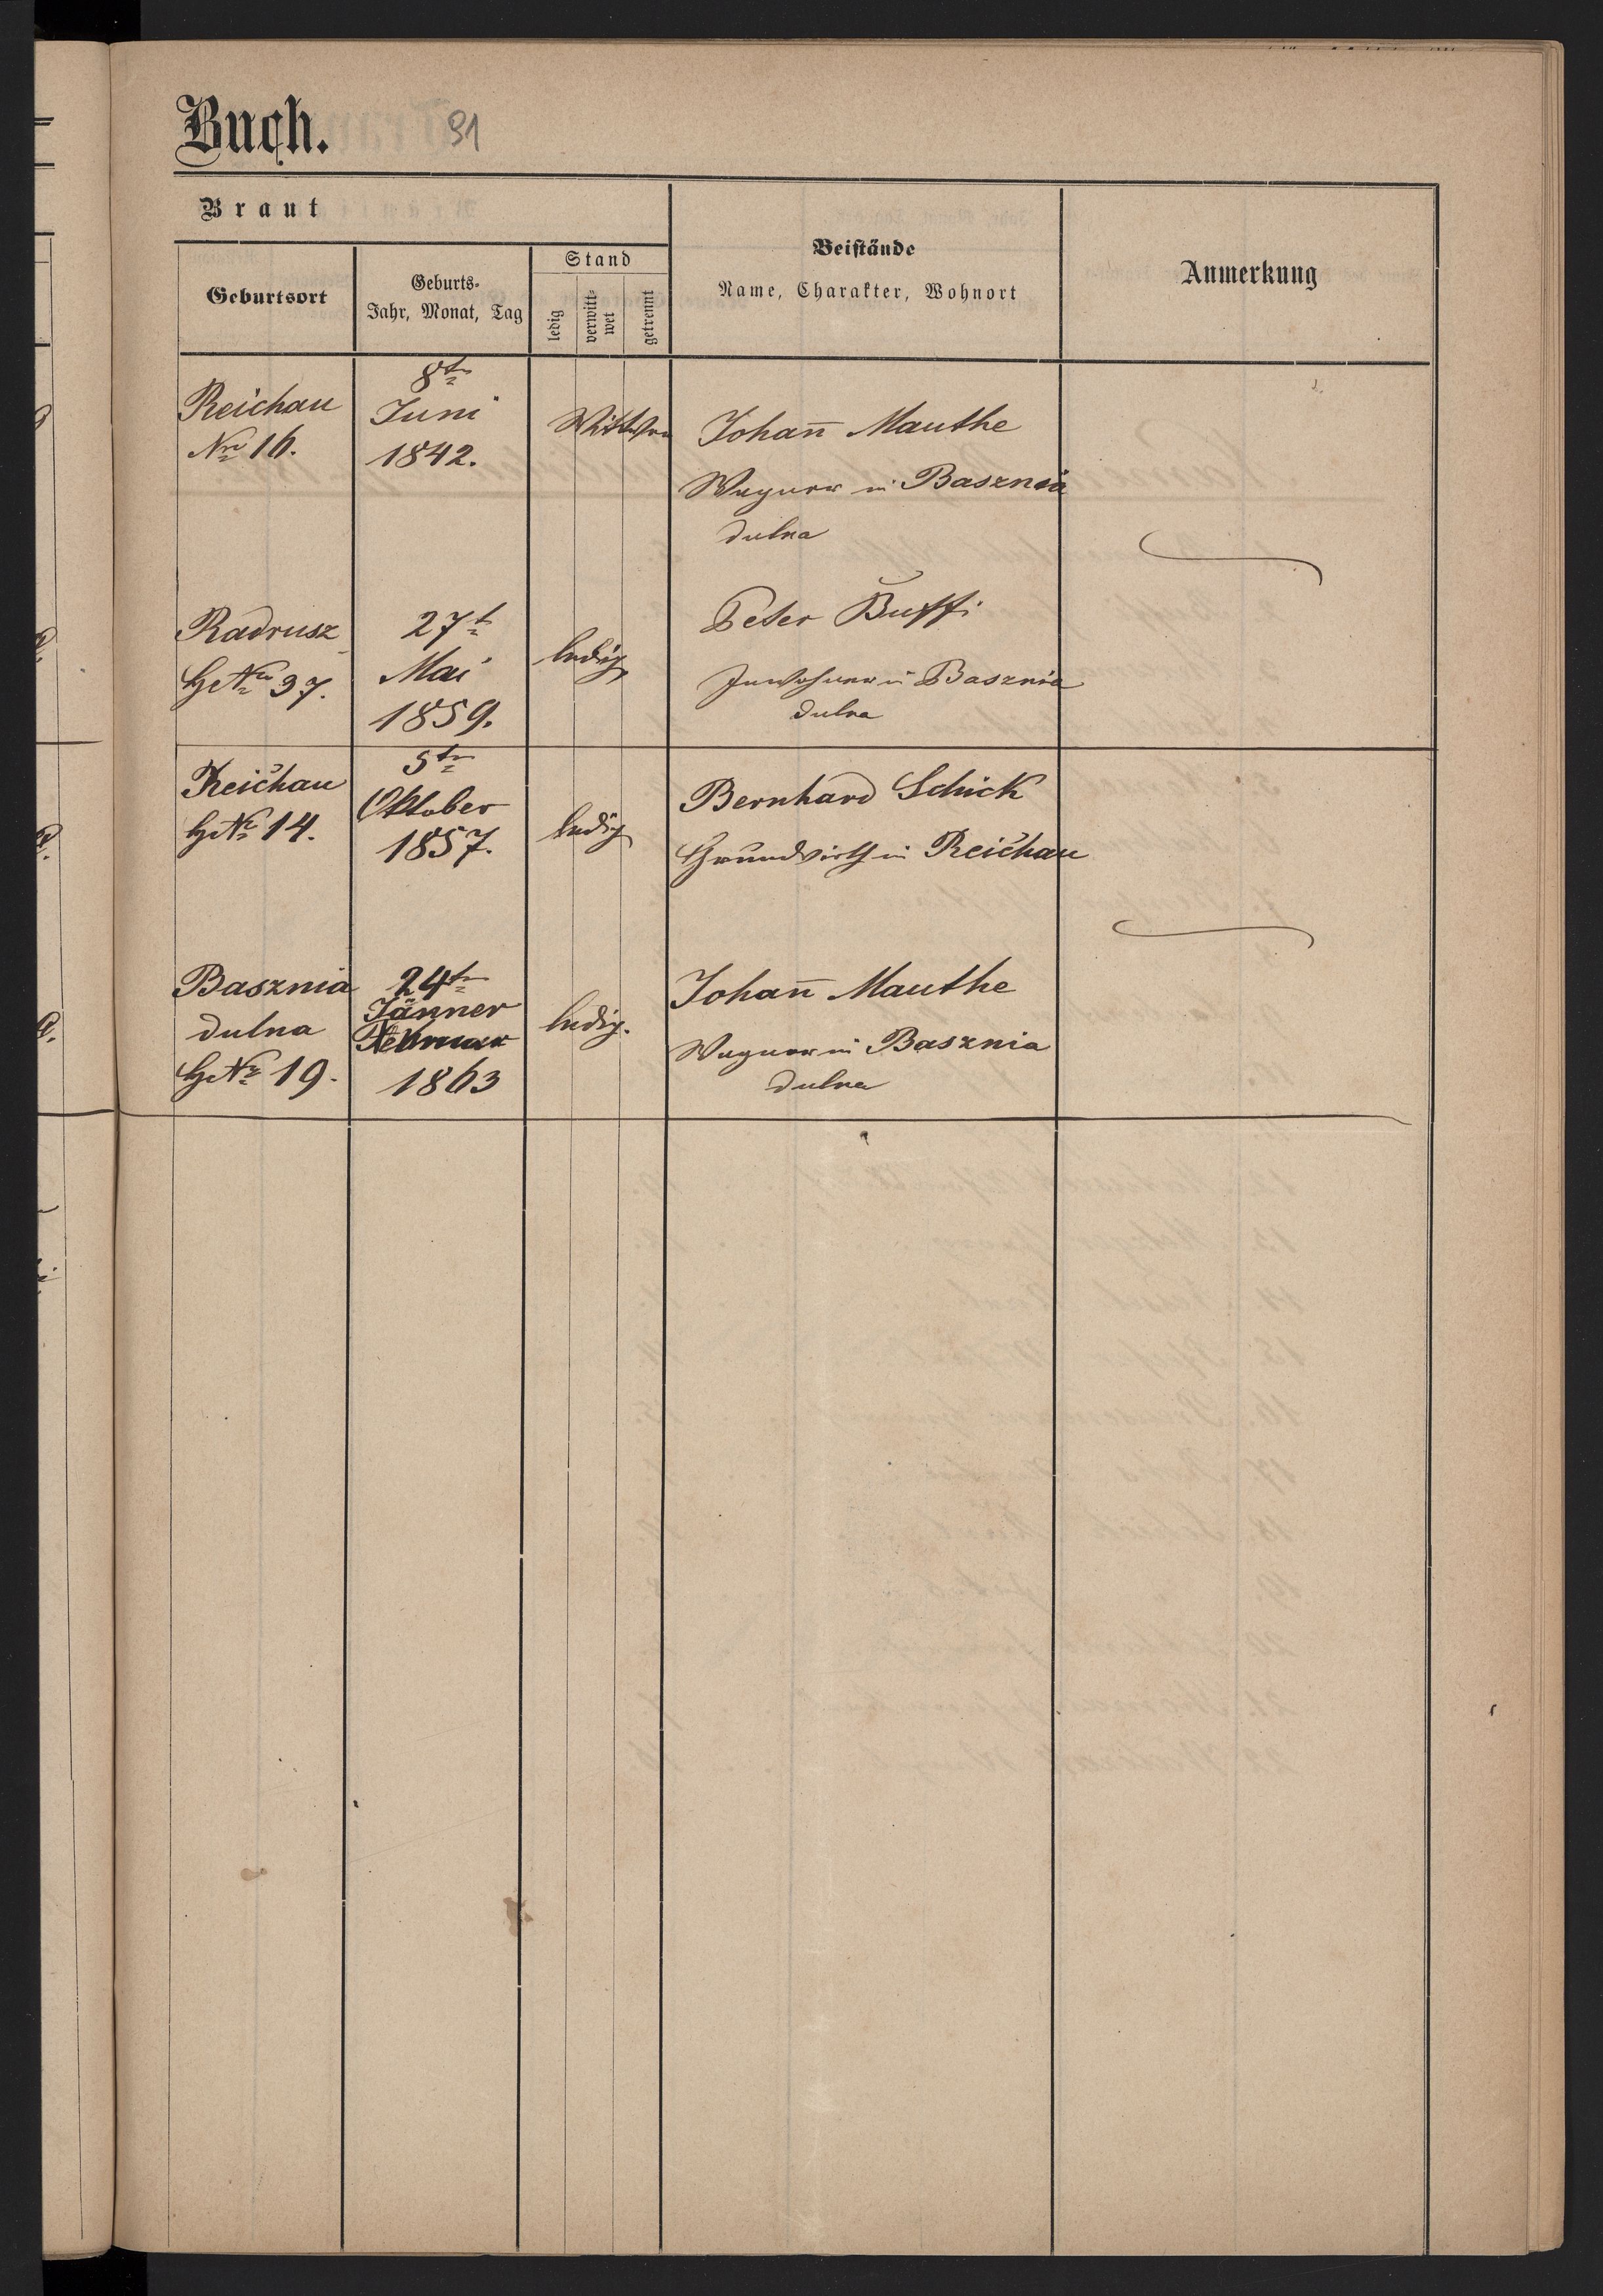 Buch.
91
Braut
Geburtsort
Geburts-
Jahr, Monat, Tag
Stand
ledig
verwitt-
wet
getrennt
Beistände
Name, Charakter, Wohnort
Anmerkung
Reichau
Nro 16.
8tn
Juni
1842.
Johan̄ Mauthe
Wagner in Basznia
dulna
Radrusz
HNro 37.
27t
Mai
1859.
ledig
Peter Buffi
Inwohner in Basznia
dulna
Reichau
HNr 14.
5tn
Oktober
1857.
ledig
Bernhard Schick
Grundwirth in Reichau
Basznia
dulna
HNr 19.
24tn
Jänner
Februar
1863
ledig.
Johan̄ Mauthe
Wagner in Basznia
dulna